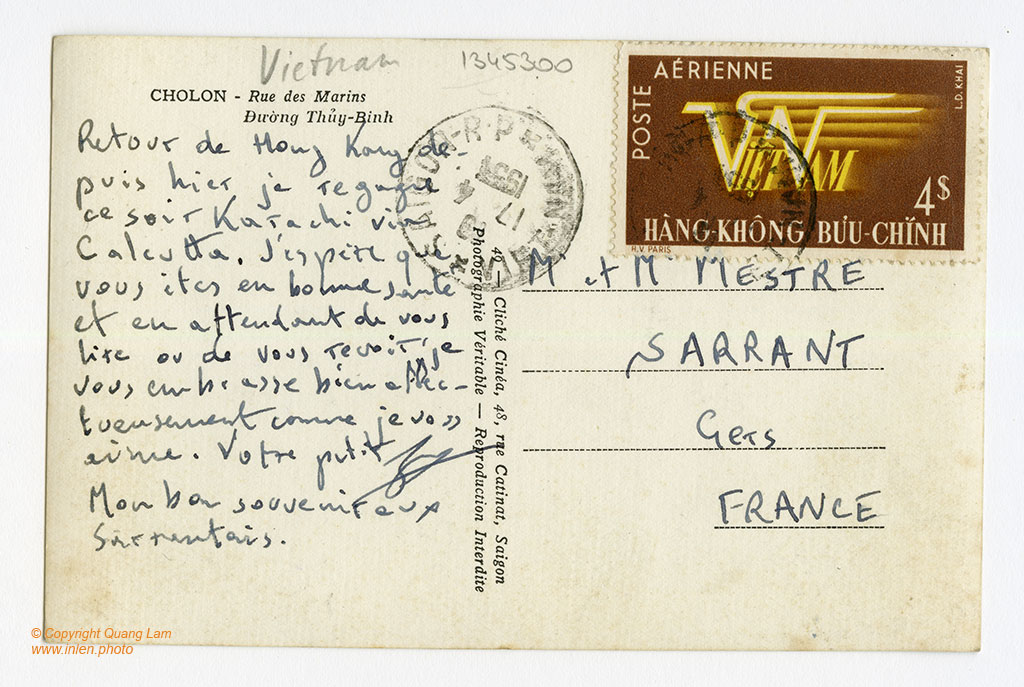 Vietnam
1345300
CHOLON - Rue des Marins
Đường Thủy-Binh
Retour de Hong Kong de-
puis hier je regagne
ce soir Karachi via
Calcutta. J'espère que
vous êtes en bonne santé
et en attendant de vous
lire ou de vous revoir, je
vous embrasse bien affec-
tueusement comme je vous
aime. Votre petit
Mon bon souvenir aux
Sarrantais.
49 — Cliché Cinéa, 48, rue Catinat, Saigon
Photographie Véritable — Reproduction Interdite
SAIGON-R.P
17
POSTE AÉRIENNE
L.D. KHAI
VN
VIỆT NAM
4$
HÀNG-KHÔNG BƯU-CHÍNH
H.V. PARIS
M et M MESTRE
SARRANT
Gers
FRANCE
© Copyright Quang Lam
www.inlen.photo